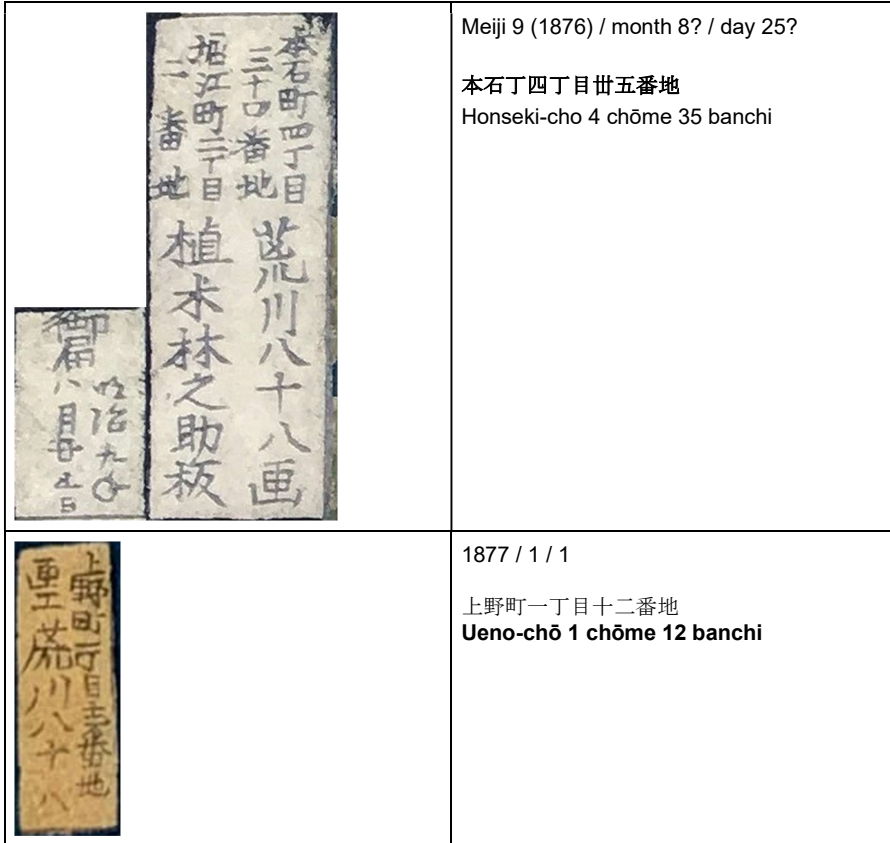 本石町四丁目
三十番地
荒川八十八画
堀江町二丁目
二番地
植木林之助板
明治九年
御届八月廿五日
Meiji 9 (1876) / month 8? / day 25?
本石丁四丁目丗五番地
Honseki-cho 4 chōme 35 banchi
上野町一丁目十二番地
画工 荒川八十八
1877 / 1 / 1
上野町一丁目十二番地
Ueno-chō 1 chōme 12 banchi